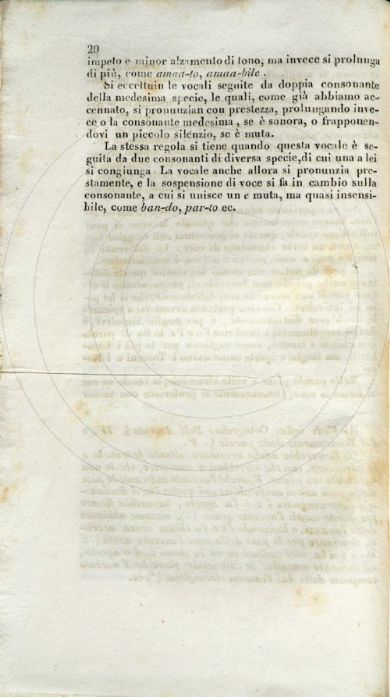 20
impeto e minor alzamento di tono, ma invece si prolunga
di più, come amaa-to, amaa-bile.
Si eccettuin le vocali seguite da doppia consonante
della medesima specie, le quali, come già abbiamo ac-
cennato, si pronunzian con prestezza, prolungando inve-
ce o la consonante medesima, se è sonora, o frapponen-
dovi un piccolo silenzio, se è muta.
La stessa regola si tiene quando questa vocale è se-
guita da due consonanti di diversa specie, di cui una a lei
si congiunga. La vocale anche allora si pronunzia pre-
stamente, e la sospensione di voce si fa in cambio sulla
consonante, a cui si unisce un e muta, ma quasi insensi-
bile, come ban-do, par-to ec.